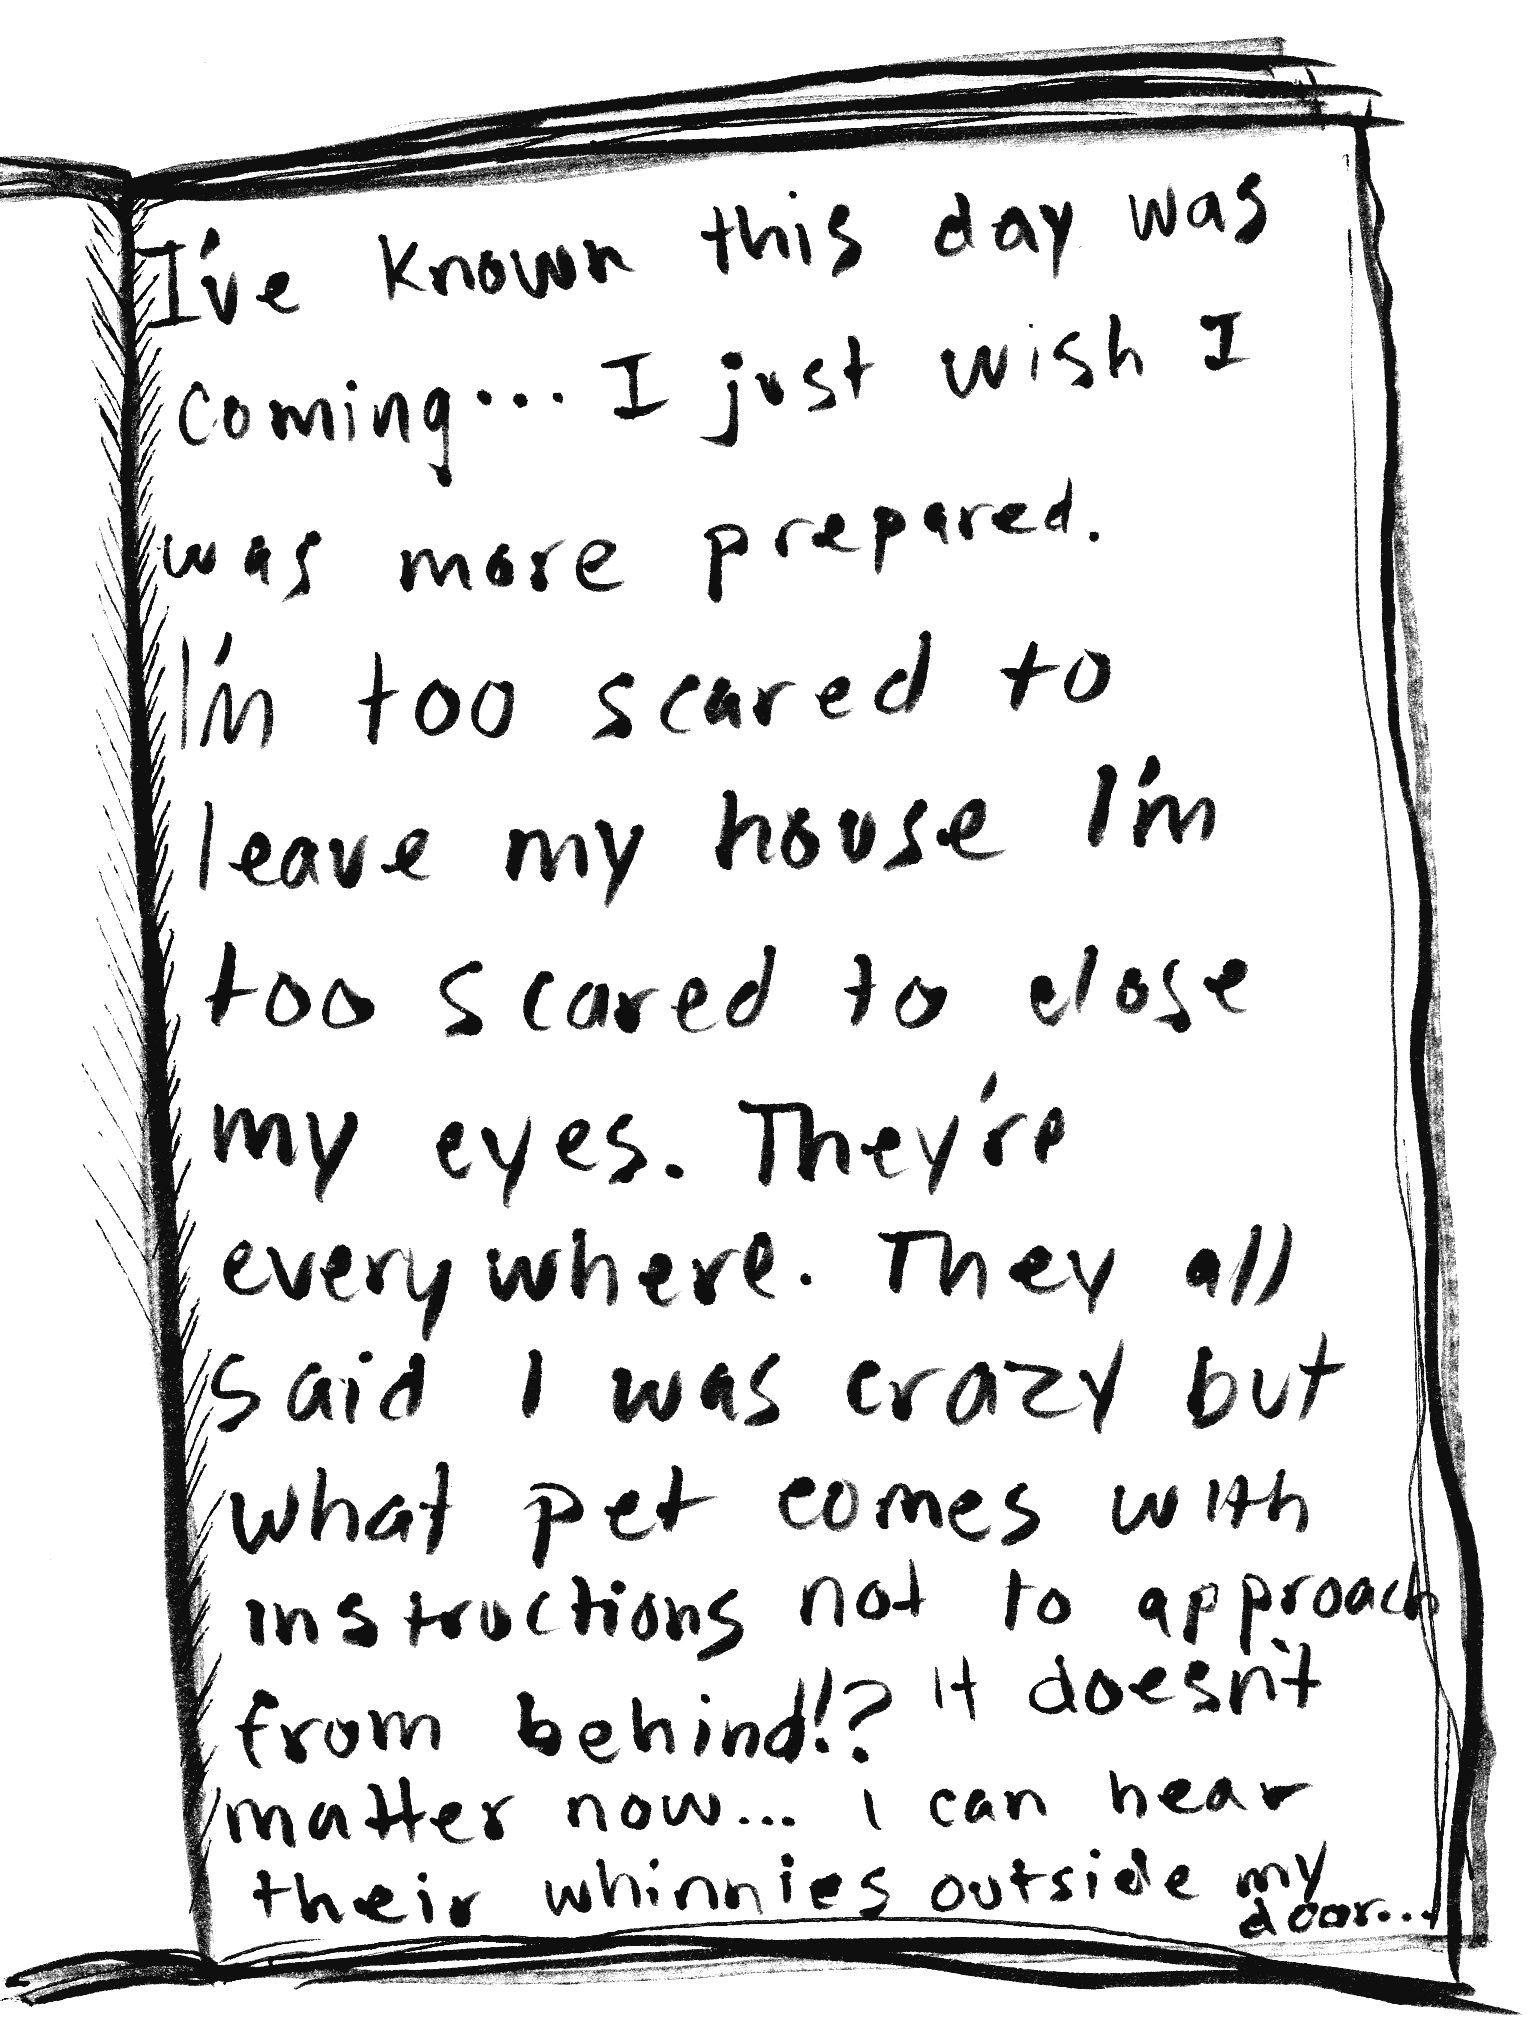 I've known this day was
coming... I just wish I
was more prepared.
I'm too scared to
leave my house I'm
too scared to close
my eyes. They're
everywhere. They all
said I was crazy but
what pet comes with
instructions not to approach
from behind!? It doesn't
matter now... i can hear
their whinnies outside my
door...